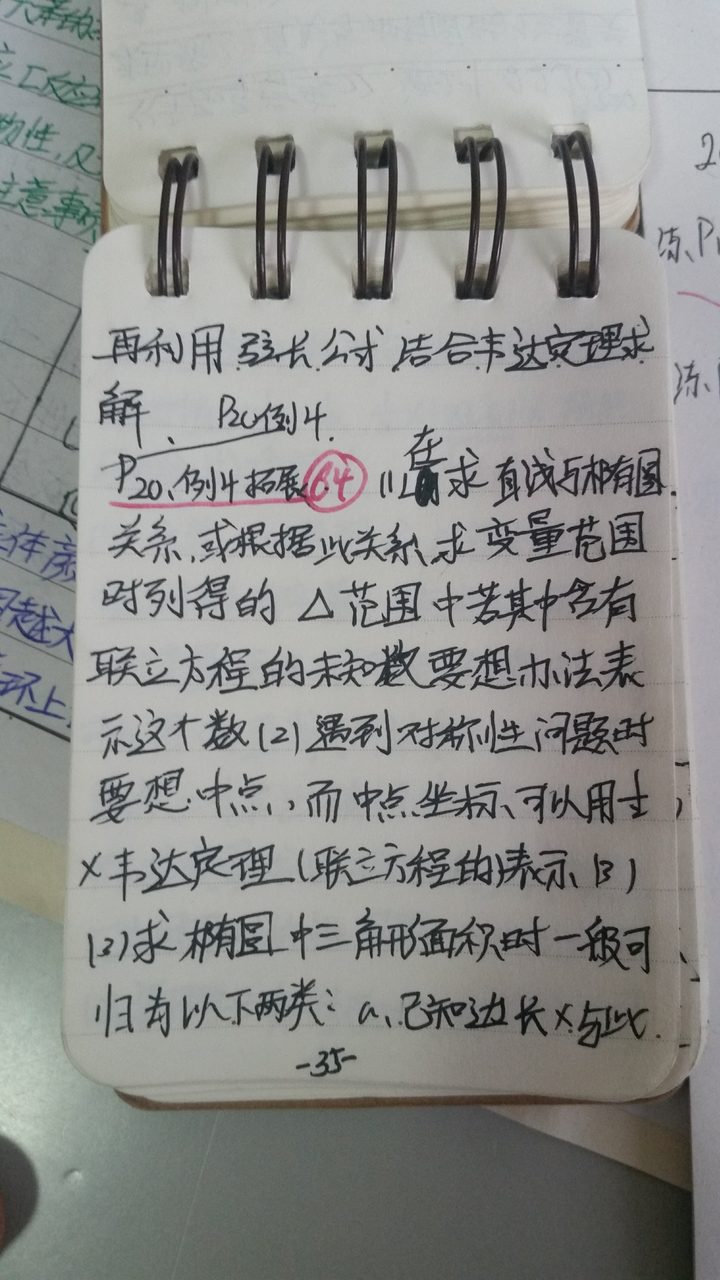 再利用弦长公式结合韦达定理求
解、P20例4.
P20、例4拓展. 64 (1)在求直线与椭圆
关系,或根据此关系,求变量范围
时列得的△范围中若其中含有
联立方程的未知数要想办法表
示这个数(2)遇到对称性问题时
要想中点,而中点坐标、可以用士
×韦达定理(联立方程的)表示、(3)
(3)求椭圆中三角形面积时一般可
归为以下两类:a、已知边长×与此
-35-
立工反应
物性,及
注意事